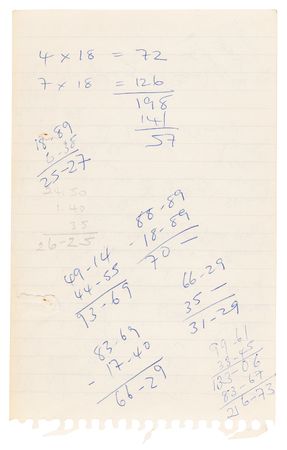 4 × 18 = 72
7 × 18 = 126
198
141
57
18-89
6-38
25-27
1.40
35
26-25
88-89
- 18-89
70 —
49-14
44-55
93-69
66-29
35 —
31-29
83-69
- 17-40
66-29
38-45
123-06
83-67
216-73